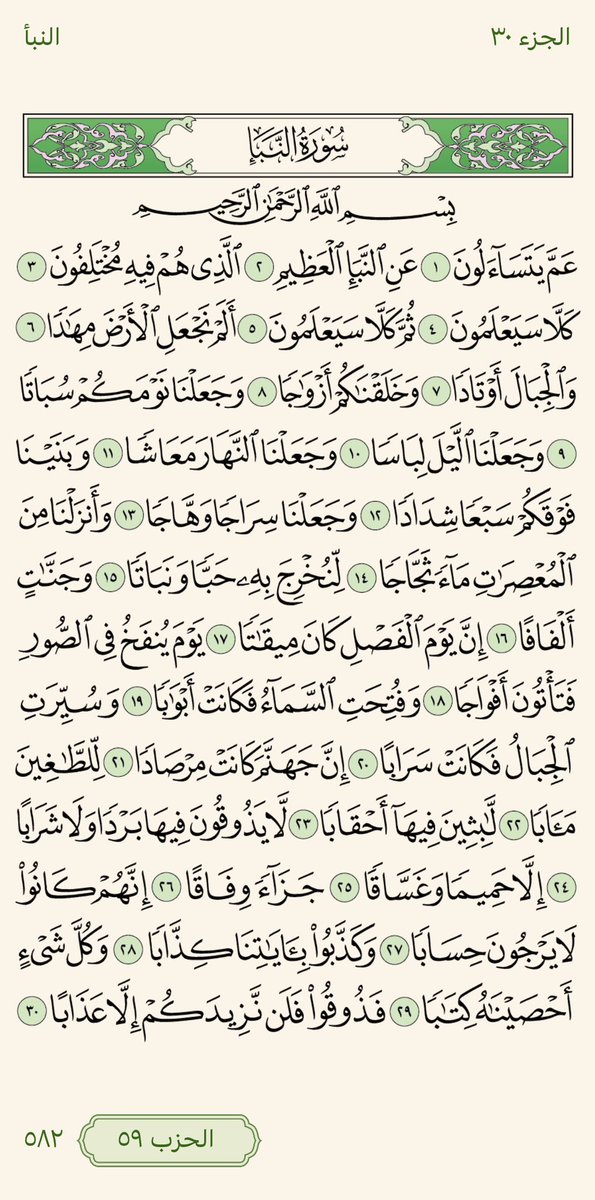 الجزء ٣٠ النبأ
سُورَةُ النَّبَإِ
بِسْمِ ٱللَّهِ ٱلرَّحْمَٰنِ ٱلرَّحِيمِ
عَمَّ يَتَسَآءَلُونَ ١ عَنِ ٱلنَّبَإِ ٱلْعَظِيمِ ٢ ٱلَّذِى هُمْ فِيهِ مُخْتَلِفُونَ ٣
كَلَّا سَيَعْلَمُونَ ٤ ثُمَّ كَلَّا سَيَعْلَمُونَ ٥ أَلَمْ نَجْعَلِ ٱلْأَرْضَ مِهَٰدًا ٦
وَٱلْجِبَالَ أَوْتَادًا ٧ وَخَلَقْنَٰكُمْ أَزْوَٰجًا ٨ وَجَعَلْنَا نَوْمَكُمْ سُبَاتًا
٩ وَجَعَلْنَا ٱلَّيْلَ لِبَاسًا ١٠ وَجَعَلْنَا ٱلنَّهَارَ مَعَاشًا ١١ وَبَنَيْنَا
فَوْقَكُمْ سَبْعًا شِدَادًا ١٢ وَجَعَلْنَا سِرَاجًا وَهَّاجًا ١٣ وَأَنزَلْنَا مِنَ
ٱلْمُعْصِرَٰتِ مَآءً ثَجَّاجًا ١٤ لِّنُخْرِجَ بِهِۦ حَبًّا وَنَبَاتًا ١٥ وَجَنَّٰتٍ
أَلْفَافًا ١٦ إِنَّ يَوْمَ ٱلْفَصْلِ كَانَ مِيقَٰتًا ١٧ يَوْمَ يُنفَخُ فِى ٱلصُّورِ
فَتَأْتُونَ أَفْوَاجًا ١٨ وَفُتِحَتِ ٱلسَّمَآءُ فَكَانَتْ أَبْوَٰبًا ١٩ وَسُيِّرَتِ
ٱلْجِبَالُ فَكَانَتْ سَرَابًا ٢٠ إِنَّ جَهَنَّمَ كَانَتْ مِرْصَادًا ٢١ لِّلطَّٰغِينَ
مَـَٔابًا ٢٢ لَّٰبِثِينَ فِيهَآ أَحْقَابًا ٢٣ لَّا يَذُوقُونَ فِيهَا بَرْدًا وَلَا شَرَابًا
٢٤ إِلَّا حَمِيمًا وَغَسَّاقًا ٢٥ جَزَآءً وِفَاقًا ٢٦ إِنَّهُمْ كَانُوا۟
لَا يَرْجُونَ حِسَابًا ٢٧ وَكَذَّبُوا۟ بِـَٔايَٰتِنَا كِذَّابًا ٢٨ وَكُلَّ شَىْءٍ
أَحْصَيْنَٰهُ كِتَٰبًا ٢٩ فَذُوقُوا۟ فَلَن نَّزِيدَكُمْ إِلَّا عَذَابًا ٣٠
الحزب ٥٩ ٥٨٢